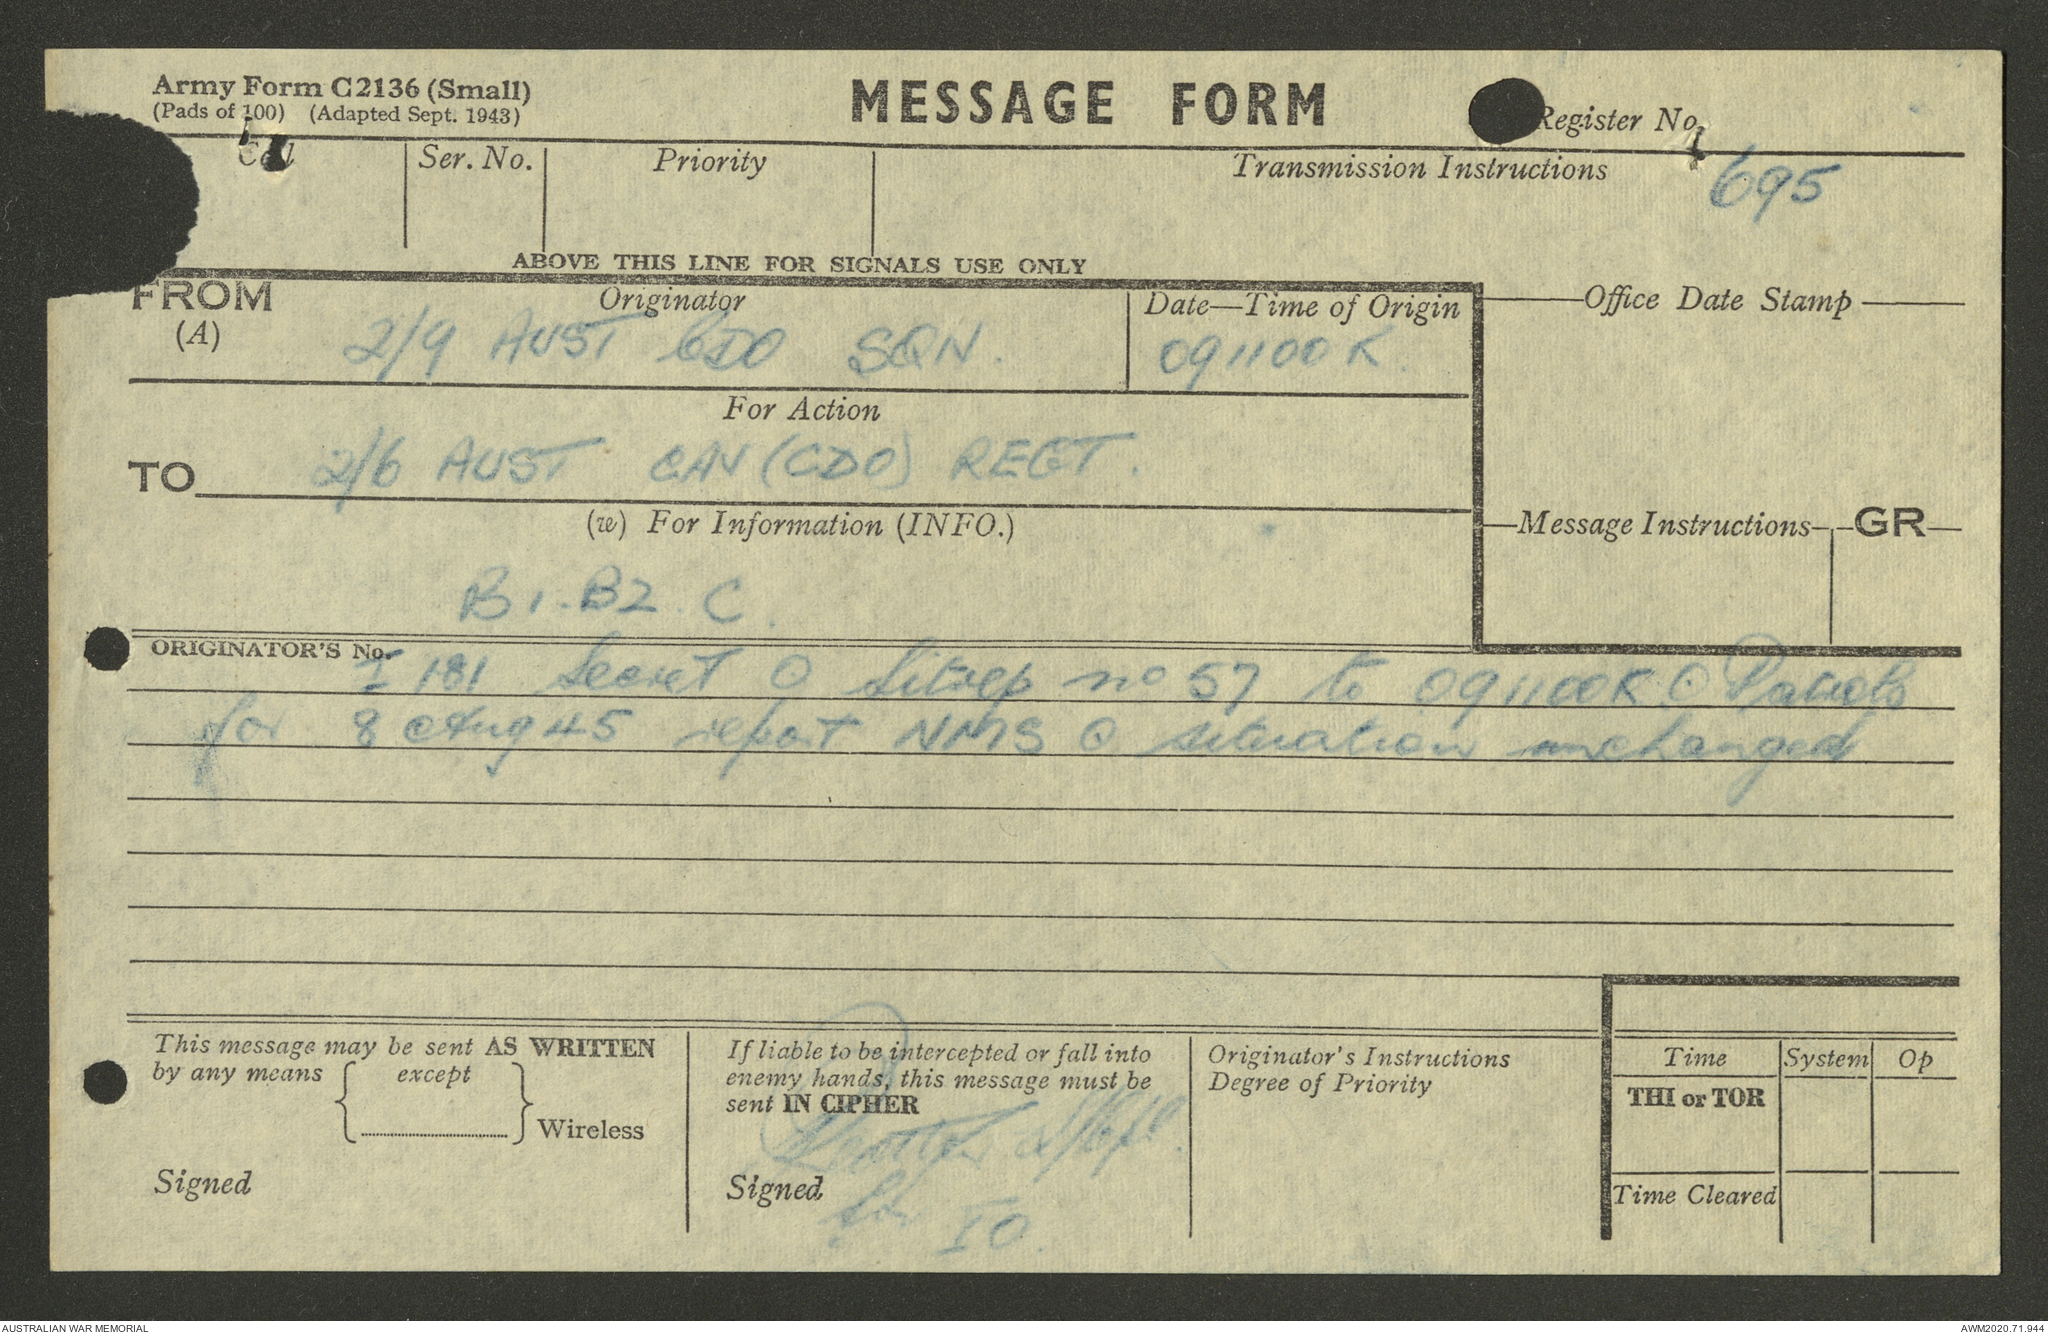 Army Form C2136 (Small)
(Pads of 100) (Adapted Sept. 1943)
MESSAGE FORM
Register No.
Call
Ser. No.
Priority
Transmission Instructions
695
ABOVE THIS LINE FOR SIGNALS USE ONLY
FROM
(A)
Originator
2/9 AUST CDO SQN.
Date—Time of Origin
091100K.
Office Date Stamp
For Action
TO
2/6 AUST CAV (CDO) REGT.
(w) For Information (INFO.)
Message Instructions
GR
B1. B2. C.
ORIGINATOR'S No.
I 181 Secret O Sitrep no 57 to 091100K O Patrols
for 8 Aug 45 report NMS O situation unchanged
This message may be sent AS WRITTEN
by any means except
Wireless
Signed
If liable to be intercepted or fall into
enemy hands, this message must be
sent IN CIPHER
Signed
for IO.
Originator's Instructions
Degree of Priority
Time
System
Op
THI or TOR
Time Cleared
AUSTRALIAN WAR MEMORIAL
AWM2020.71.944